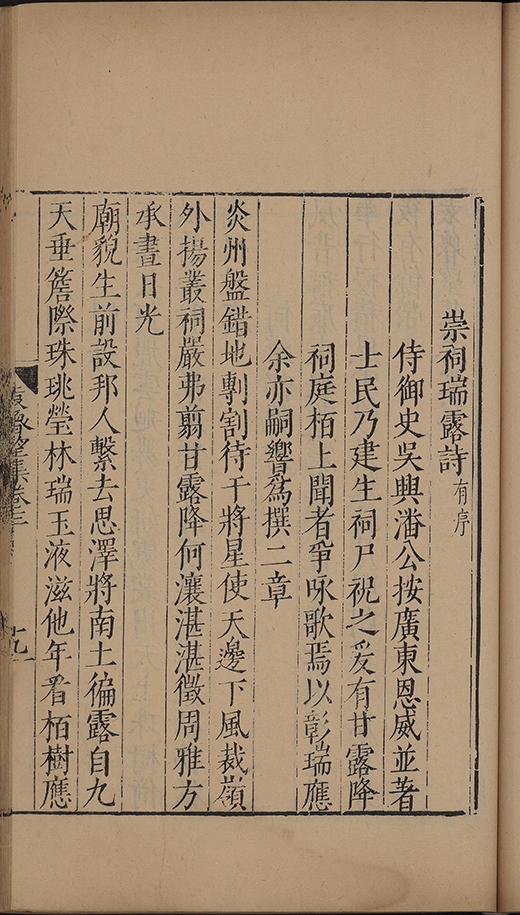 崇祠瑞露詩有序
侍御史吳興潘公按廣東恩威並著
士民乃建生祠尸祝之爰有甘露降
祠庭栢上聞者爭咏歌焉以彰瑞應
余亦嗣響爲撰二章
炎州盤錯地剸割待干將星使天邊下風裁嶺
外揚叢祠嚴弗翦甘露降何瀼湛湛徵周雅方
承晝日光
廟貌生前設邦人繫去思澤將南土徧露自九
天垂簷際珠珧瑩林瑞玉液滋他年看栢樹應
集卷
十九